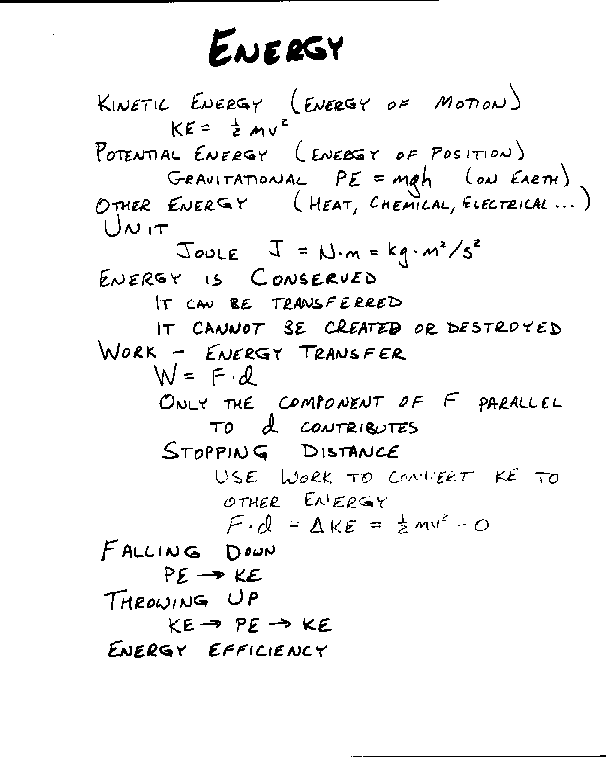 ENERGY
KINETIC ENERGY (ENERGY OF MOTION)
KE = ½ mv²
POTENTIAL ENERGY (ENERGY OF POSITION)
GRAVITATIONAL PE = mgh (ON EARTH)
OTHER ENERGY (HEAT, CHEMICAL, ELECTRICAL ...)
UNIT
JOULE J = N·m = kg·m²/s²
ENERGY IS CONSERVED
IT CAN BE TRANSFERRED
IT CANNOT BE CREATED OR DESTROYED
WORK - ENERGY TRANSFER
W = F·d
ONLY THE COMPONENT OF F PARALLEL
TO d CONTRIBUTES
STOPPING DISTANCE
USE WORK TO CONVERT KE TO
OTHER ENERGY
F·d = ΔKE = ½ mv² - 0
FALLING DOWN
PE → KE
THROWING UP
KE → PE → KE
ENERGY EFFICIENCY